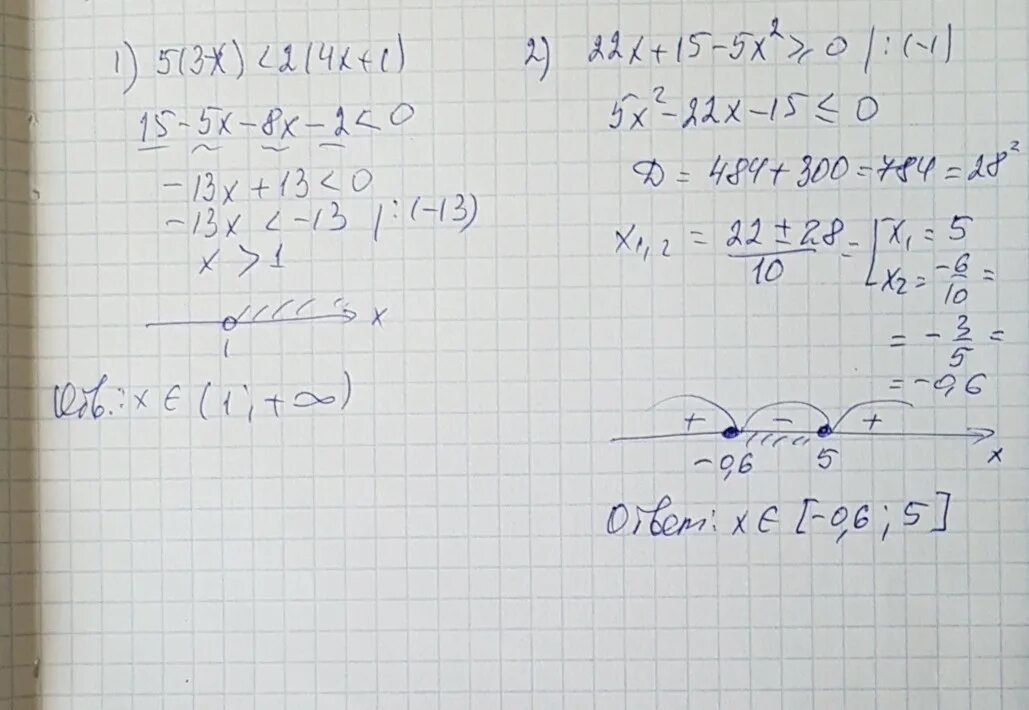 1) 5(3-x) < 2(4x+1)
15-5x-8x-2<0
-13x+13<0
-13x < -13 | :(-13)
x > 1
x
1
Отв.: x ∈ (1; +∞)
2) 22x+15-5x² ≥ 0 | :(-1)
5x²-22x-15 ≤ 0
D = 484+300=784=28²
x₁,₂ = (22 ± 28)/10 = [x₁ = 5
x₂ = -6/10 =
= -3/5 =
= -0,6
+ - +
-0,6 5 x
Ответ: x ∈ [-0,6; 5]